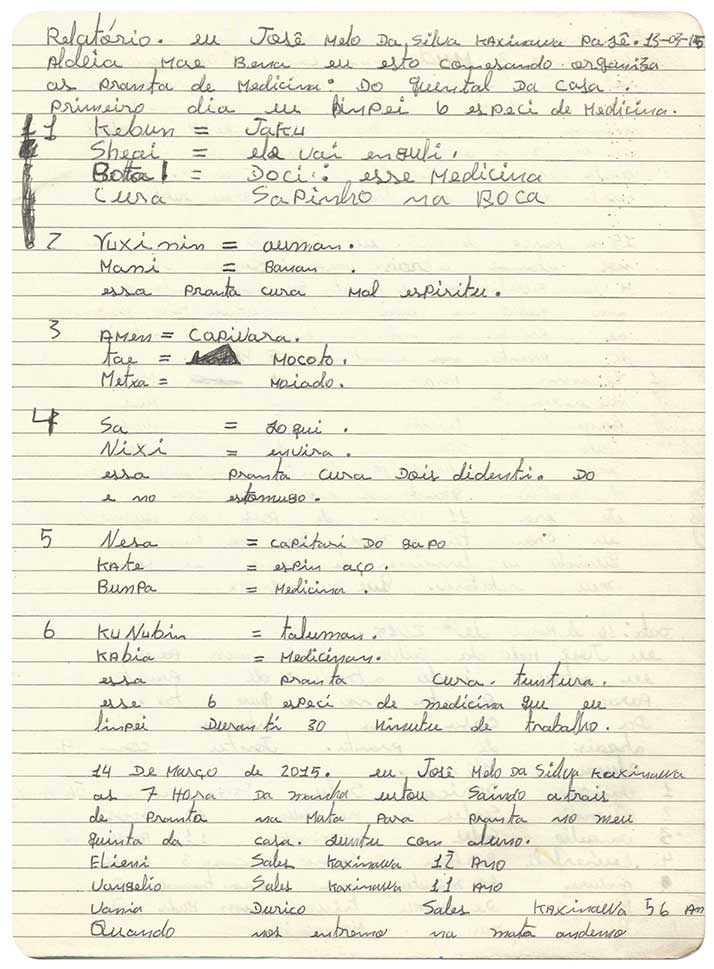 Relatório. eu José Melo Da Silva Kaxinawa Dasê. 13-03-15
Aldeia Mae Bena eu esto comesando organiza
as pranta de Medicina: Do quental Da Casa.
primeiro dia eu linpei 6 especi de Medicina.
1 Kebun = Jaku
Sheai = ele vai enguli.
Bata = Doci: esse Medicina
Cura Sapinho na BOCA
2 Yuxi nin = auman.
Mani = Banan.
essa pranta cura mal espiritu.
3 AMen = Capivara.
tae = MOCOTO.
Metxa = Moiado.
4 Sa = Zoqui.
Nixi = envira.
essa pranta cura Dois didenti. Do
e no estomugo.
5 Nesa = capitari Do sapo
Kate = espin aço.
Bunpa = Medicina.
6 Ku Nubin = taluman.
Kabia = Medicinan.
essa pranta cura. tuntura.
esse 6 especi de medicina que eu
linpei Duranti 30 Minutu de trabalho.
14 De Março de 2015. eu José Melo Da Silva Kaxinawa
as 7 Hora Da manha estou Saindo atrais
de Pranta na Mata Para pranta no meu
quinta da casa. Juntu com aluno.
Elieni Sales Kaxinawa 12 Ano
Vangelio Sales Kaxinawa 11 Ano
Vania Durico Sales Kaxinawa 56 An
Quando nos entremo na mata andemo